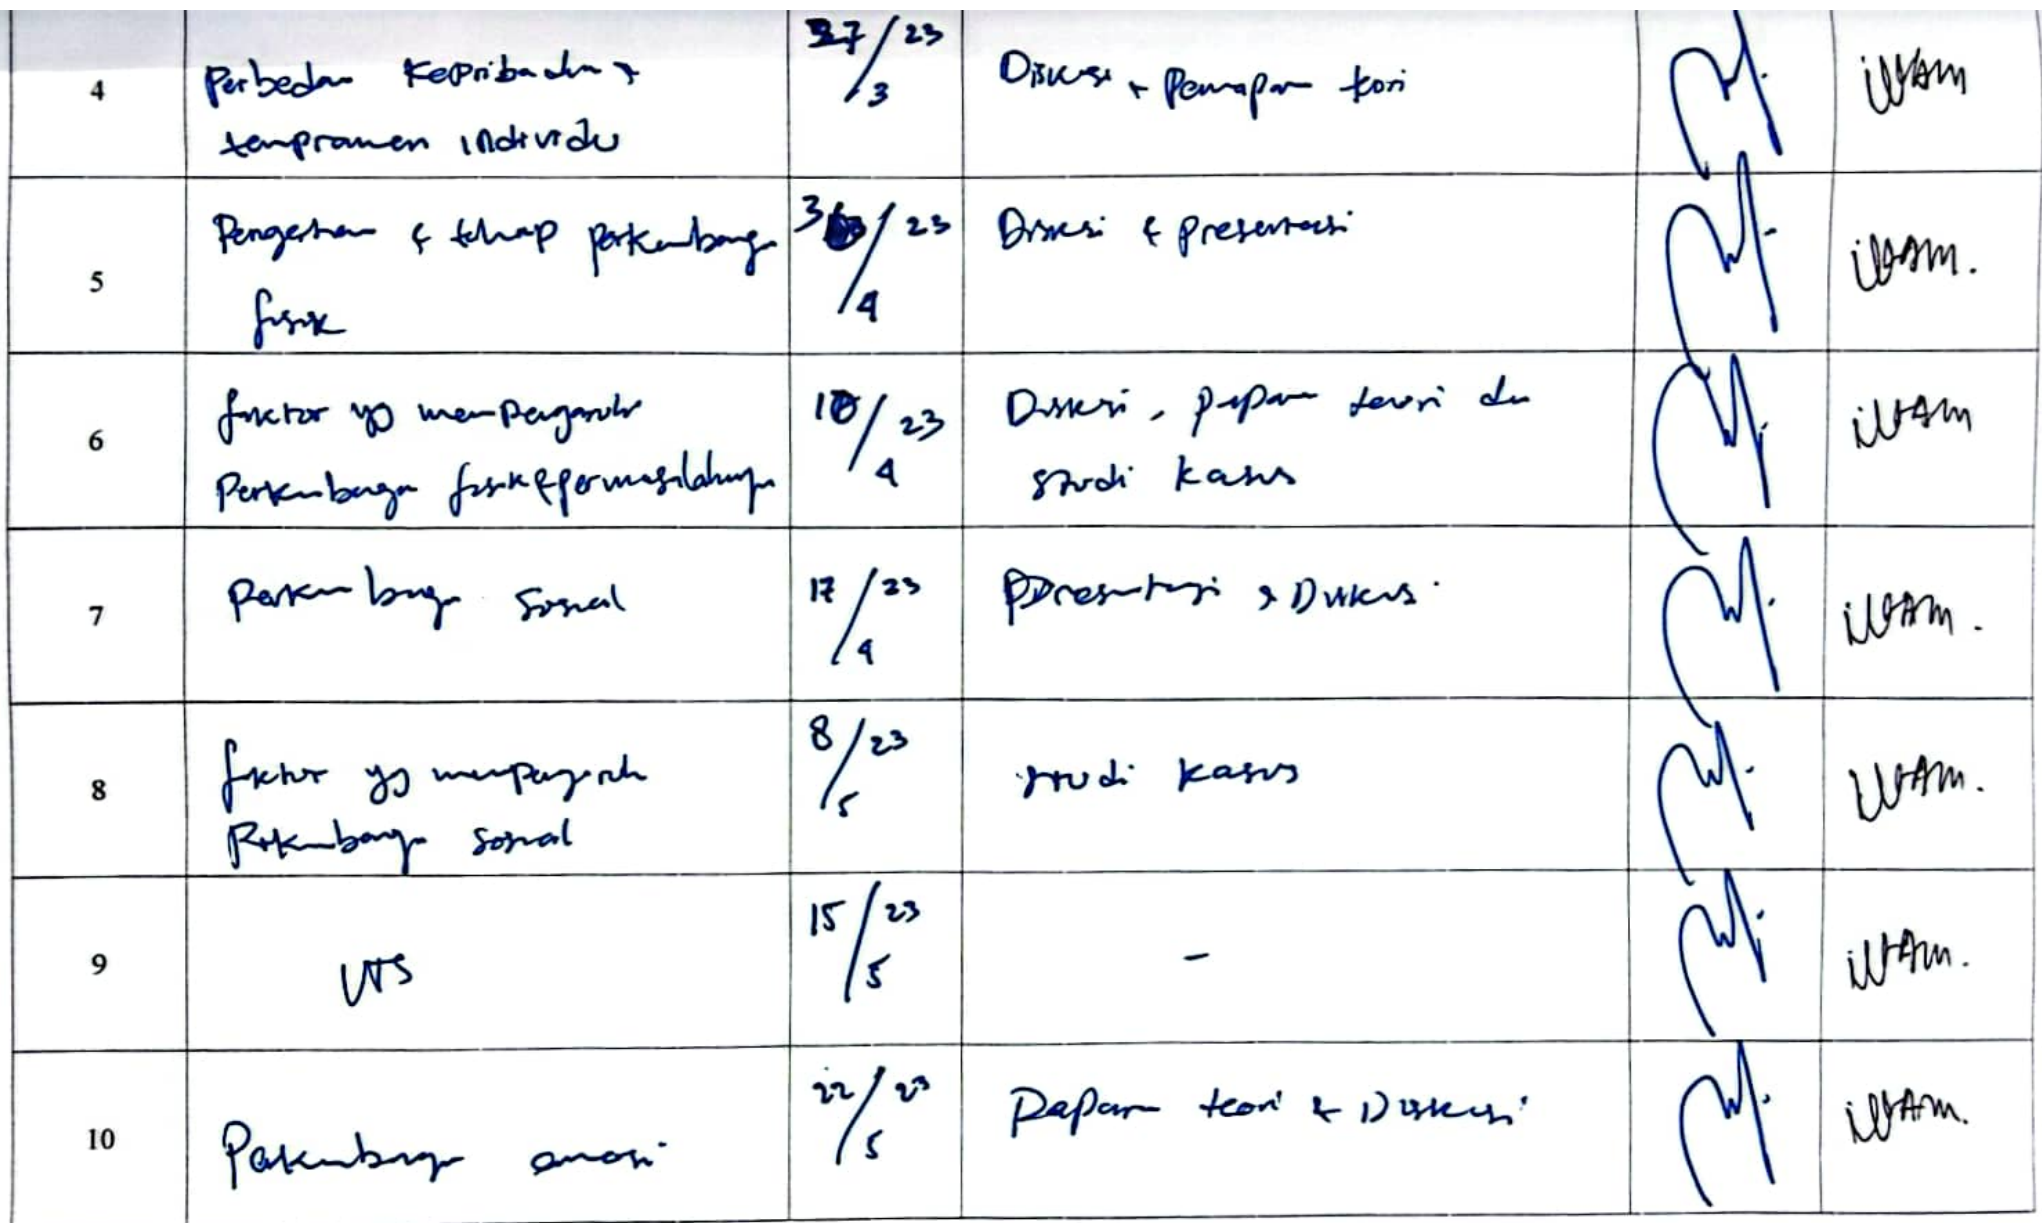 4
Perbedaan Kepribadian +
tempramen individu
27/3 23
Diskusi + Pemaparan teori
ilham
5
Pengertian & tahap perkembangan
fisik
3/4 23
Diskusi & presentasi
ilham.
6
faktor yg mempengaruhi
Perkembangan fisik & permasalahannya
10/4 23
Diskusi, paparan teori dan
studi kasus
ilham
7
Perkembangan Sosial
17/4 23
Presentasi & Diskusi
ilham.
8
faktor yg mempengaruhi
Perkembangan sosial
8/5 23
studi kasus
ilham.
9
UTS
15/5 23
-
ilham.
10
Perkembangan emosi
22/5 23
Paparan teori & Diskusi
ilham.